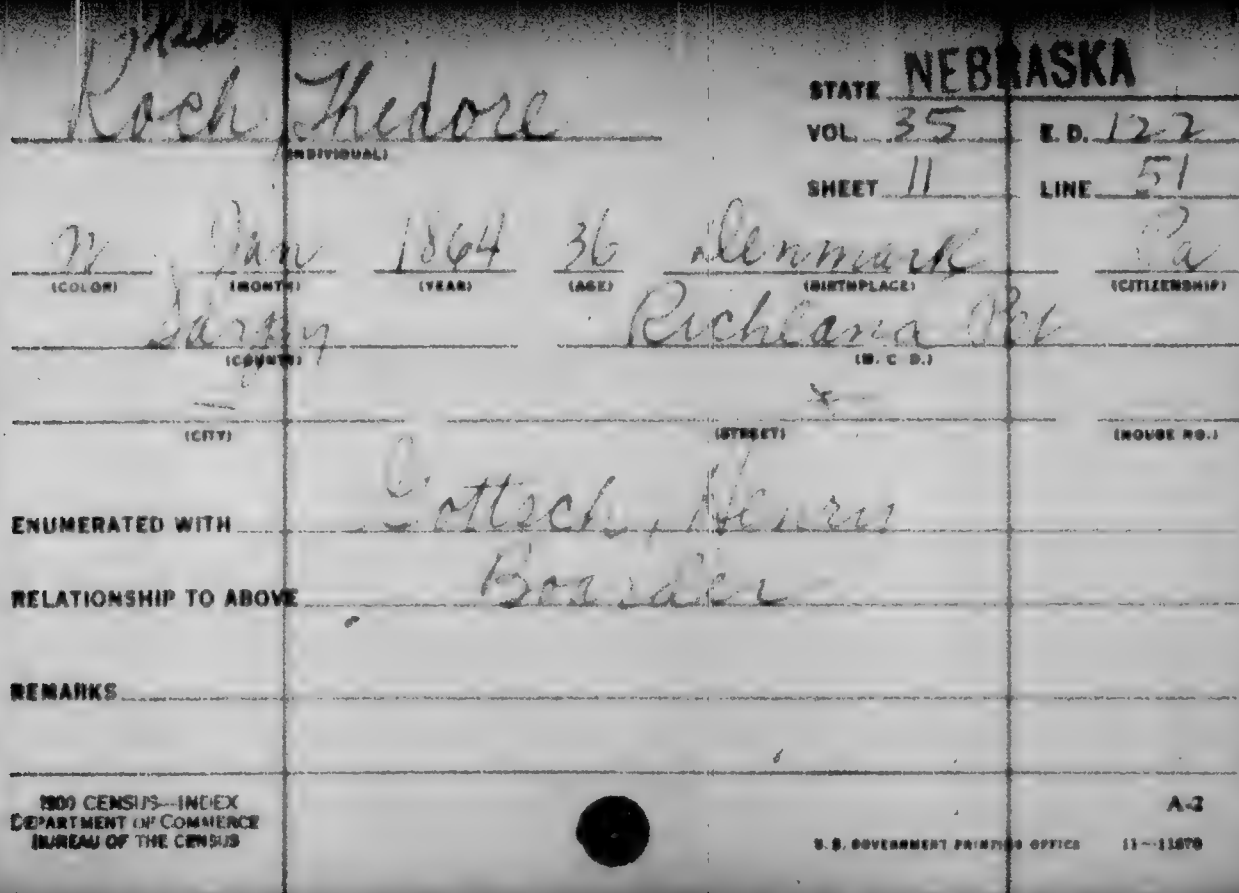 Koch, Thedore
(INDIVIDUAL)
STATE NEBRASKA
VOL. 35 E. D. 122
SHEET 11 LINE 51
W Jan 1864 36 Denmark Pa
(COLOR) (MONTH) (YEAR) (AGE) (BIRTHPLACE) (CITIZENSHIP)
Sarpy Richland Pct
(COUNTY) (M. C. D.)
(CITY) (STREET) (HOUSE NO.)
ENUMERATED WITH Henry
RELATIONSHIP TO ABOVE Boarder
REMARKS
1900 CENSUS—INDEX
DEPARTMENT OF COMMERCE
BUREAU OF THE CENSUS
A-2
U. S. GOVERNMENT PRINTING OFFICE 11—11870